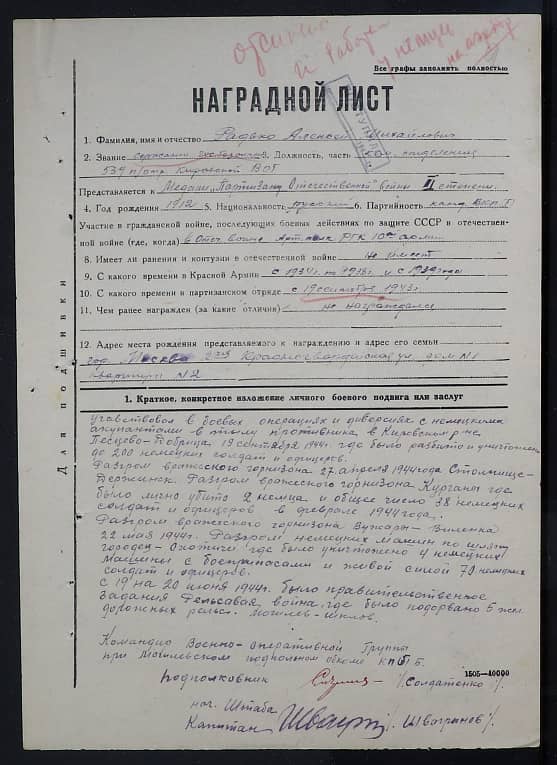 Все графы заполнять полностью
НАГРАДНОЙ ЛИСТ
1. Фамилия, имя и отчество Радько Алексей Михайлович
2. Звание Должность, часть ком. отделения
539 п/отр. Кировской ВОГ
Представляется к Медали „Партизану Отечественной войны II степени
4. Год рождения 1912 5. Национальность русский 6. Партийность канд. ВКП(б)
Участие в гражданской войне, последующих боевых действиях по защите СССР и отечествен-
ной войне (где, когда) в Отеч. войне РГК 10ой армии
8. Имеет ли ранения и контузии в отечественной войне Не имеет
9. С какого времени в Красной Армии с 1934г. по 1938г. и с 1939 года
10. С какого времени в партизанском отряде с 19 сентября 1943г.
11. Чем ранее награжден (за какие отличия) не награждался
12. Адрес места рождения представляемого к награждению и адрес его семьи
гор. Москва 2ая Красногвардейская ул. дом №1
квартира №2
Для подшивки
1. Краткое, конкретное изложение личного боевого подвига или заслуг
Участвовал в боевых операциях и диверсиях с немецкими
оккупантами в тылу противника в Кировском р-не
Песцево-Побрица 19 сентября 1944г. где было разбито и уничтожено
до 200 немецких солдат и офицеров.
Разгром вражеского горнизона 27 апреля 1944 года Столпище-
Держинск. Разгром вражеского горнизона Курганы где
было лично убито 2 немца и общее число 38 немецких
солдат и офицеров в феврале 1944 года.
Разгром вражеского горнизона Вужары-Виленка
22 мая 1944г. Разгром немецких машин по шляху
городец-Охотичи где было уничтожено 4 немецких
машины с боеприпасами и живой силой 70 немецких
солдат и офицеров.
С 19 на 20 июня 1944г. было правительственное
задания Рельсавая война где было подорвано 5 жел.
дорожных рельс. Могилев-Шклов.
Командир Военно-Оперативной Группы
при Могилевском подпольном обкоме КП(б)Б.
1505—10000
Подполковник /Солдатенко/.
нач. Штаба
Капитан /Швагринов/.